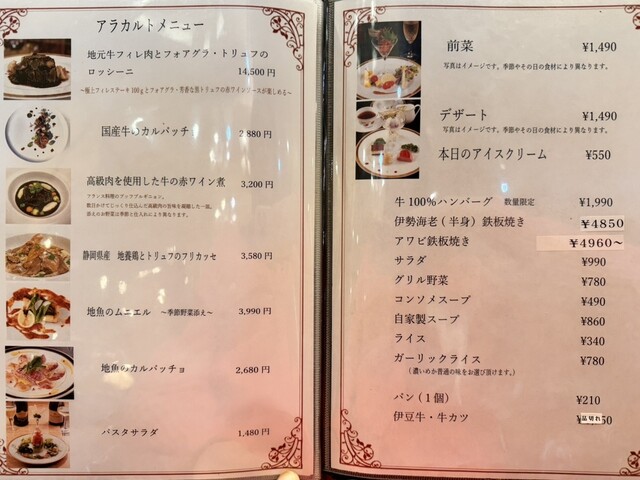 アラカルトメニュー
地元牛フィレ肉とフォアグラ・トリュフの
ロッシーニ 14,500 円
～極上フィレステーキ 100gとフォアグラ・芳香な黒トリュフの赤ワインソースが楽しめる～
国産牛のカルパッチョ 2,880 円
高級肉を使用した牛の赤ワイン煮 3,200 円
フランス料理のブッフブルギニョン。
数日かけてじっくり仕込んだ高級肉の旨味を満喫した一皿。
添えのお野菜は季節と仕入れにより異なります。
静岡県産 地養鶏とトリュフのフリカッセ 3,580 円
地魚のムニエル ～季節野菜添え～ 3,990 円
地魚のカルパッチョ 2,680 円
パスタサラダ 1,480 円
前菜 ¥1,490
写真はイメージです。季節やその日の食材により異なります。
デザート ¥1,490
写真はイメージです。季節やその日の食材により異なります。
本日のアイスクリーム ¥550
牛 100%ハンバーグ 数量限定 ¥1,990
伊勢海老 ( 半身 ) 鉄板焼き ¥4850
アワビ鉄板焼き ¥4960～
サラダ ¥990
グリル野菜 ¥780
コンソメスープ ¥490
自家製スープ ¥860
ライス ¥340
ガーリックライス ¥780
（濃いめか普通の味をお選び頂けます。）
パン ( 1 個 ) ¥210
伊豆牛・牛カツ 品切れ